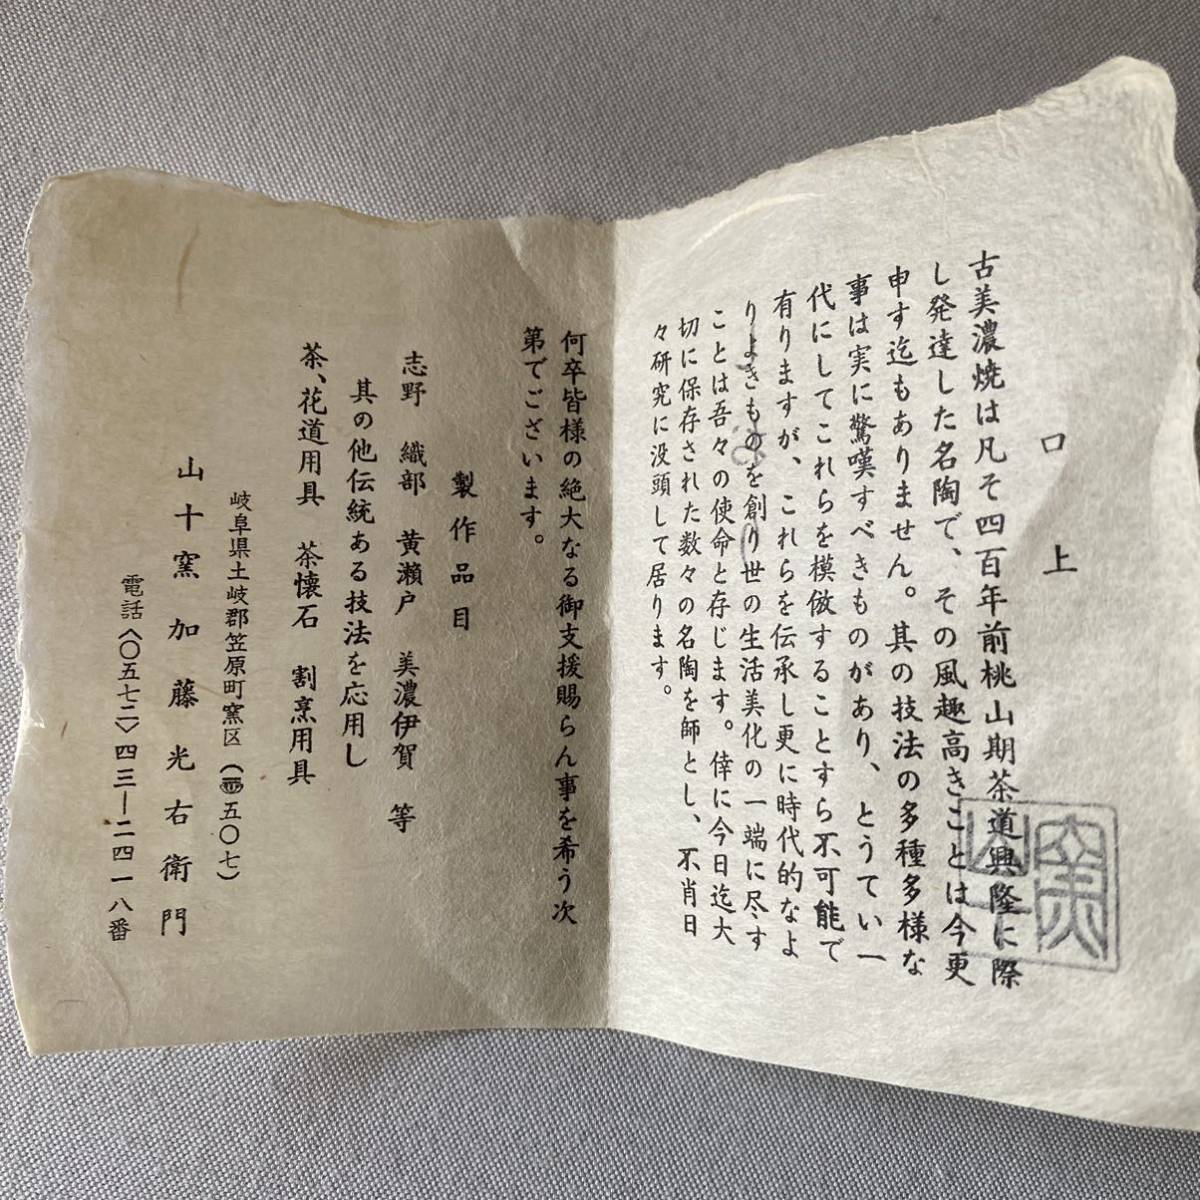 口上
古美濃焼は凡そ四百年前桃山期茶道興隆に際
し発達した名陶で、その風趣高きことは今更
申す迄もありません。其の技法の多種多様な
事は実に驚嘆すべきものがあり、とうてい一
代にしてこれらを模倣することすら不可能で
有りますが、これらを伝承し更に時代的なよ
りよきものを創り世の生活美化の一端に尽す
ことは吾々の使命と存じます。倖に今日迄大
切に保存された数々の名陶を師とし、不肖日
々研究に没頭して居ります。
何卒皆様の絶大なる御支援賜らん事を希う次
第でございます。
製作品目
志野 織部 黄瀬戸 美濃伊賀 等
其の他伝統ある技法を応用し
茶、花道用具 茶懐石 割烹用具
岐阜県土岐郡笠原町窯区(五〇七)
山十窯 加藤光右衛門
電話〈〇五七二〉四三―二四一八番